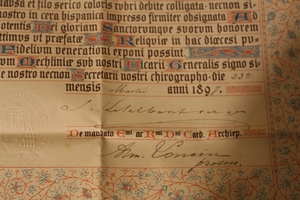 et filo serico coloris rubri debite colligata nec non si
tro in cera hispanica impresso firmiter obsignata Ad
potentis Dei gloriam Sanctorumque suorum honorem
timus ut præfatæ SS. Reliquiæ in hac diœcesi pu
Fidelium venerationi exponi possint.
um Mechliniæ sub nostri Vicarii Generalis signo si
nec non Secretarii nostri chirographo die 23ª
mensis Martii anni 189
De mandato Emi ac Rmi Dni Card. Archiep.